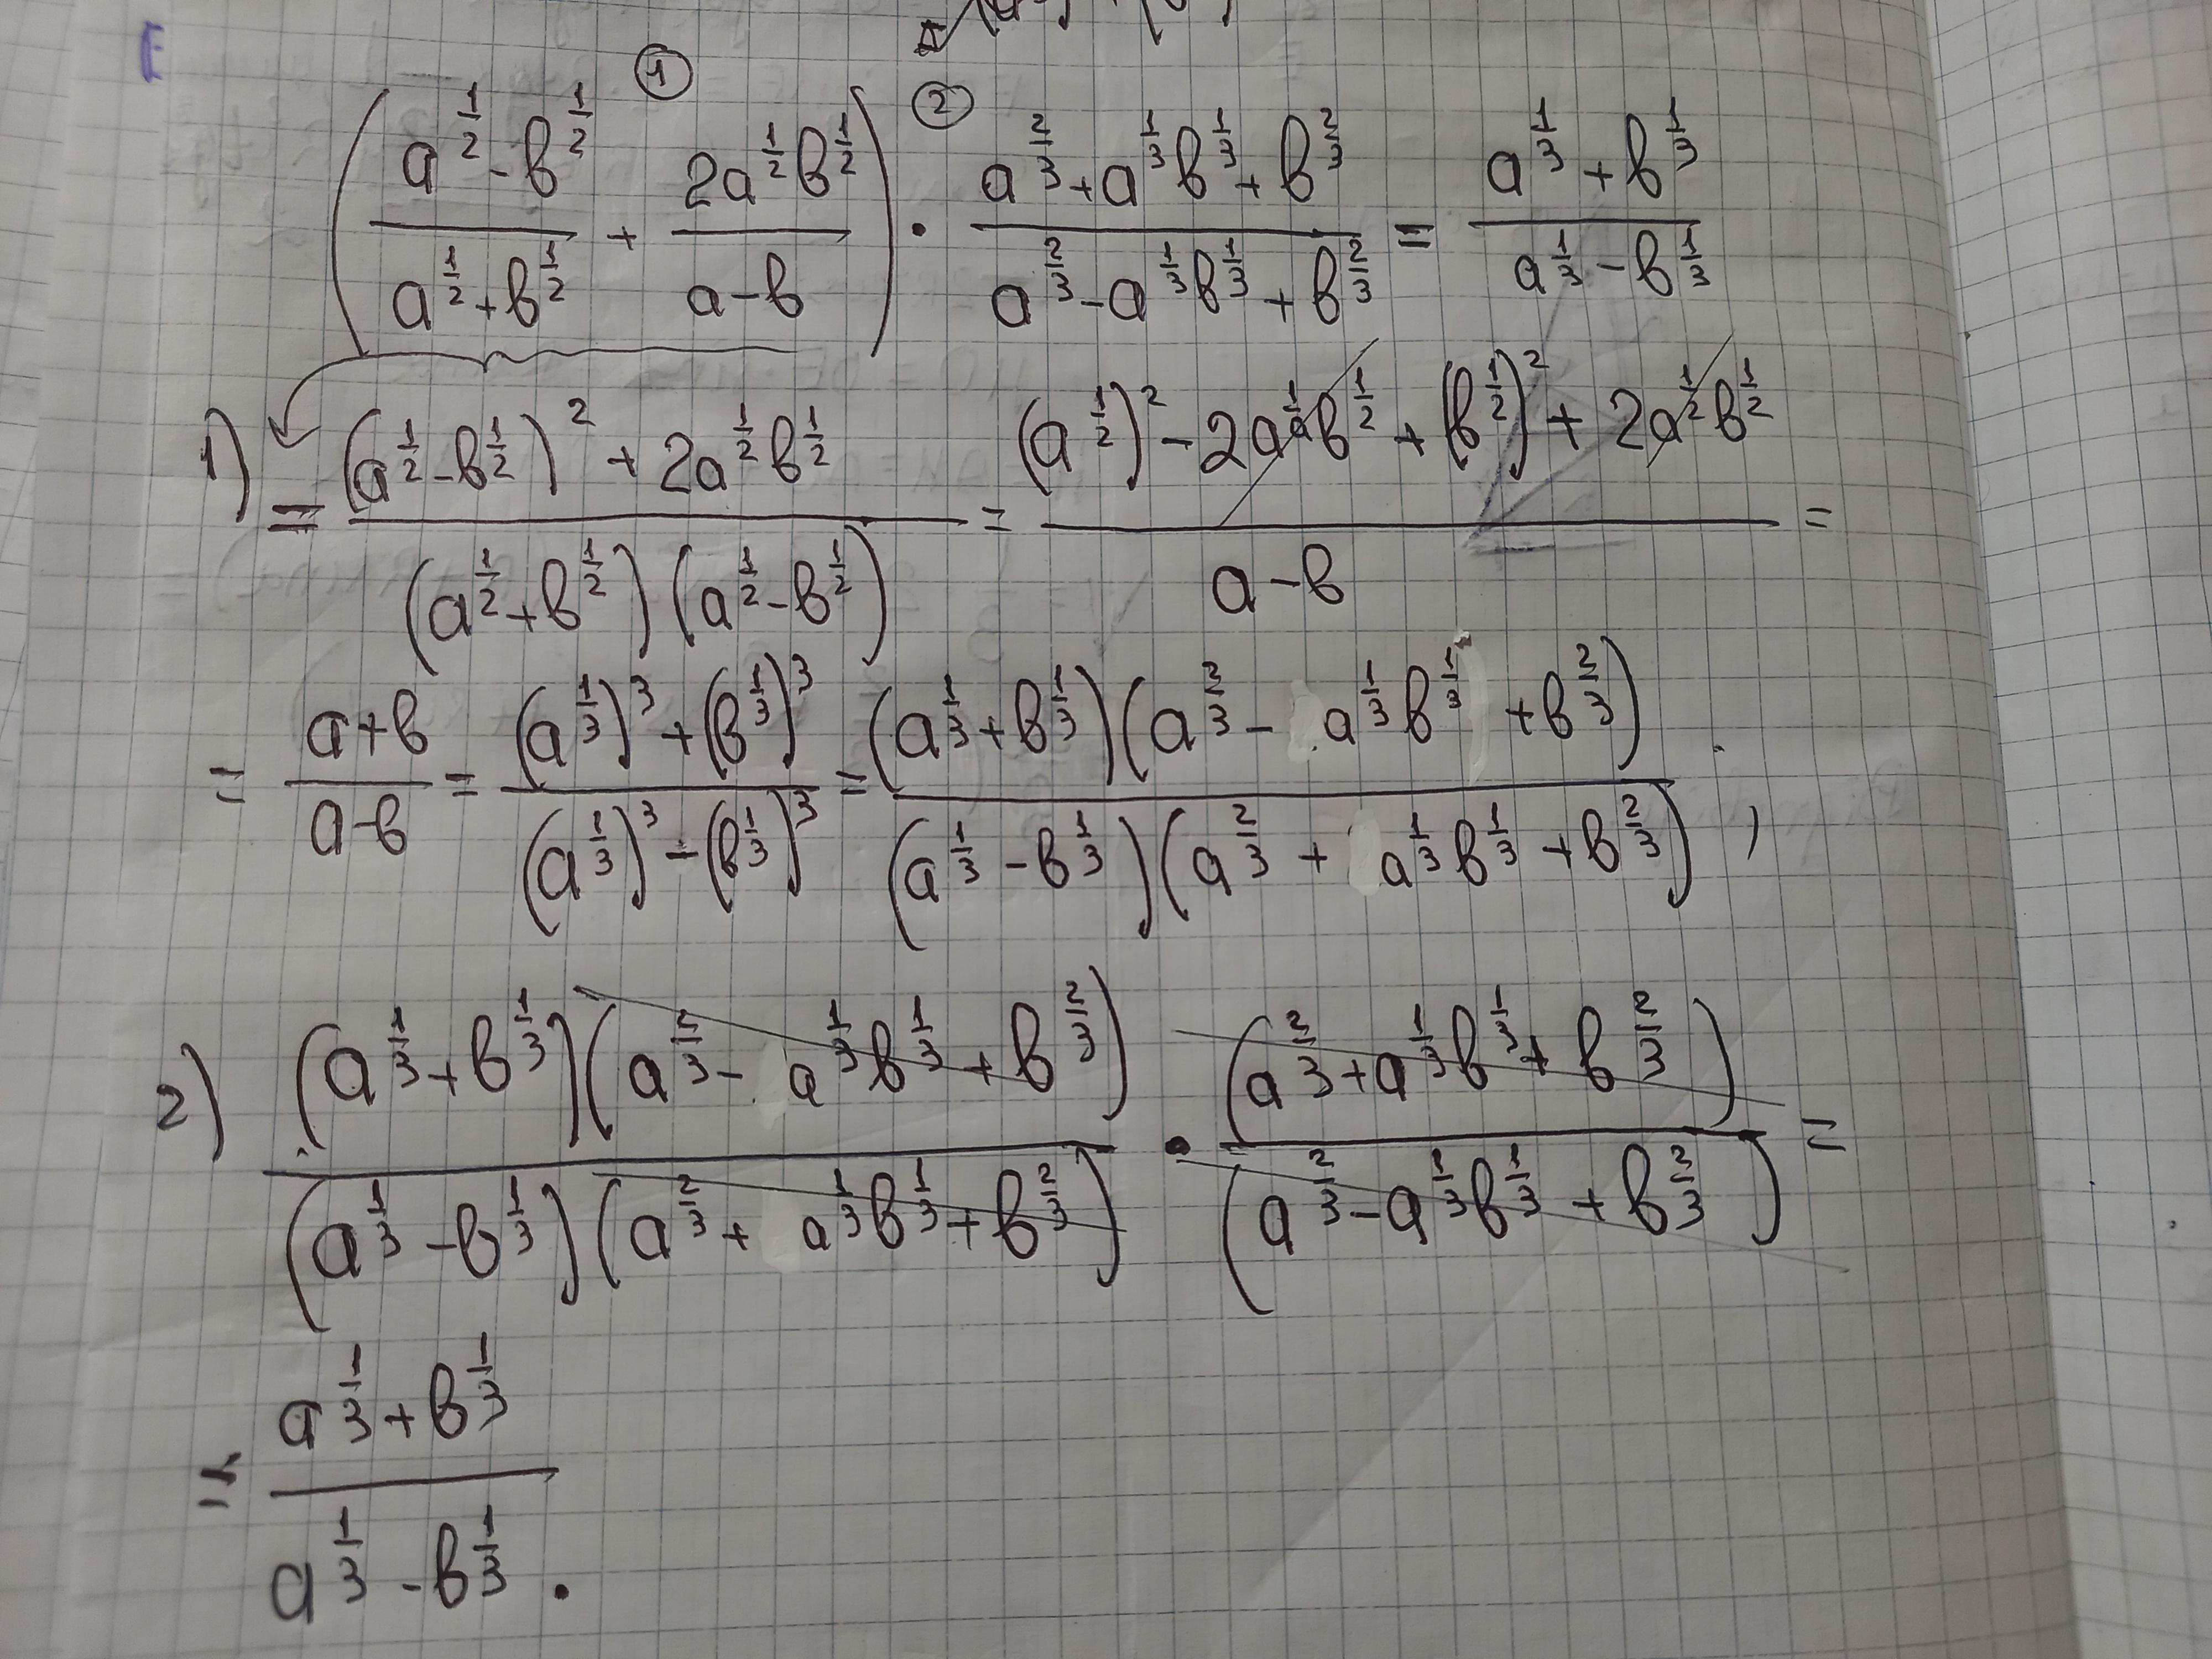 ① ②
(a^{1/2} - b^{1/2} / a^{1/2} + b^{1/2} + 2a^{1/2}b^{1/2} / a - b) · a^{2/3} + a^{1/3}b^{1/3} + b^{2/3} / a^{2/3} - a^{1/3}b^{1/3} + b^{2/3} = a^{1/3} + b^{1/3} / a^{1/3} - b^{1/3}
1) = (a^{1/2} - b^{1/2})^2 + 2a^{1/2}b^{1/2} / (a^{1/2} + b^{1/2})(a^{1/2} - b^{1/2}) = (a^{1/2})^2 - 2a^{1/2}b^{1/2} + (b^{1/2})^2 + 2a^{1/2}b^{1/2} / a - b =
= a + b / a - b = (a^{1/3})^3 + (b^{1/3})^3 / (a^{1/3})^3 - (b^{1/3})^3 = (a^{1/3} + b^{1/3})(a^{2/3} - a^{1/3}b^{1/3} + b^{2/3}) / (a^{1/3} - b^{1/3})(a^{2/3} + a^{1/3}b^{1/3} + b^{2/3}) ;
2) (a^{1/3} + b^{1/3})(a^{2/3} - a^{1/3}b^{1/3} + b^{2/3}) / (a^{1/3} - b^{1/3})(a^{2/3} + a^{1/3}b^{1/3} + b^{2/3}) · (a^{2/3} + a^{1/3}b^{1/3} + b^{2/3}) / (a^{2/3} - a^{1/3}b^{1/3} + b^{2/3}) =
= a^{1/3} + b^{1/3} / a^{1/3} - b^{1/3} .